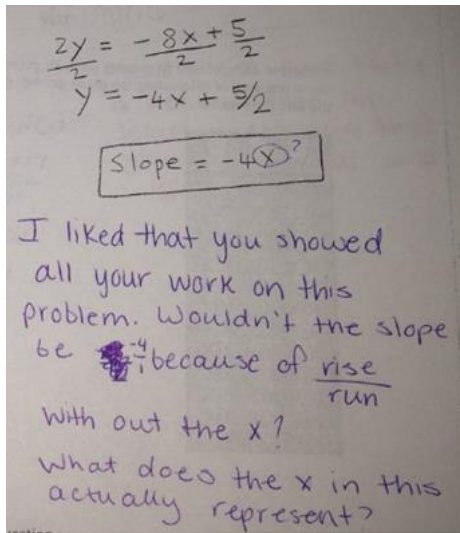 2y/2 = -8x/2 + 5/2
y = -4x + 5/2
Slope = -4x ?
I liked that you showed
all your work on this
problem. Wouldn't the slope
be -4/1 because of rise/run
With out the x?
What does the x in this
actually represent?